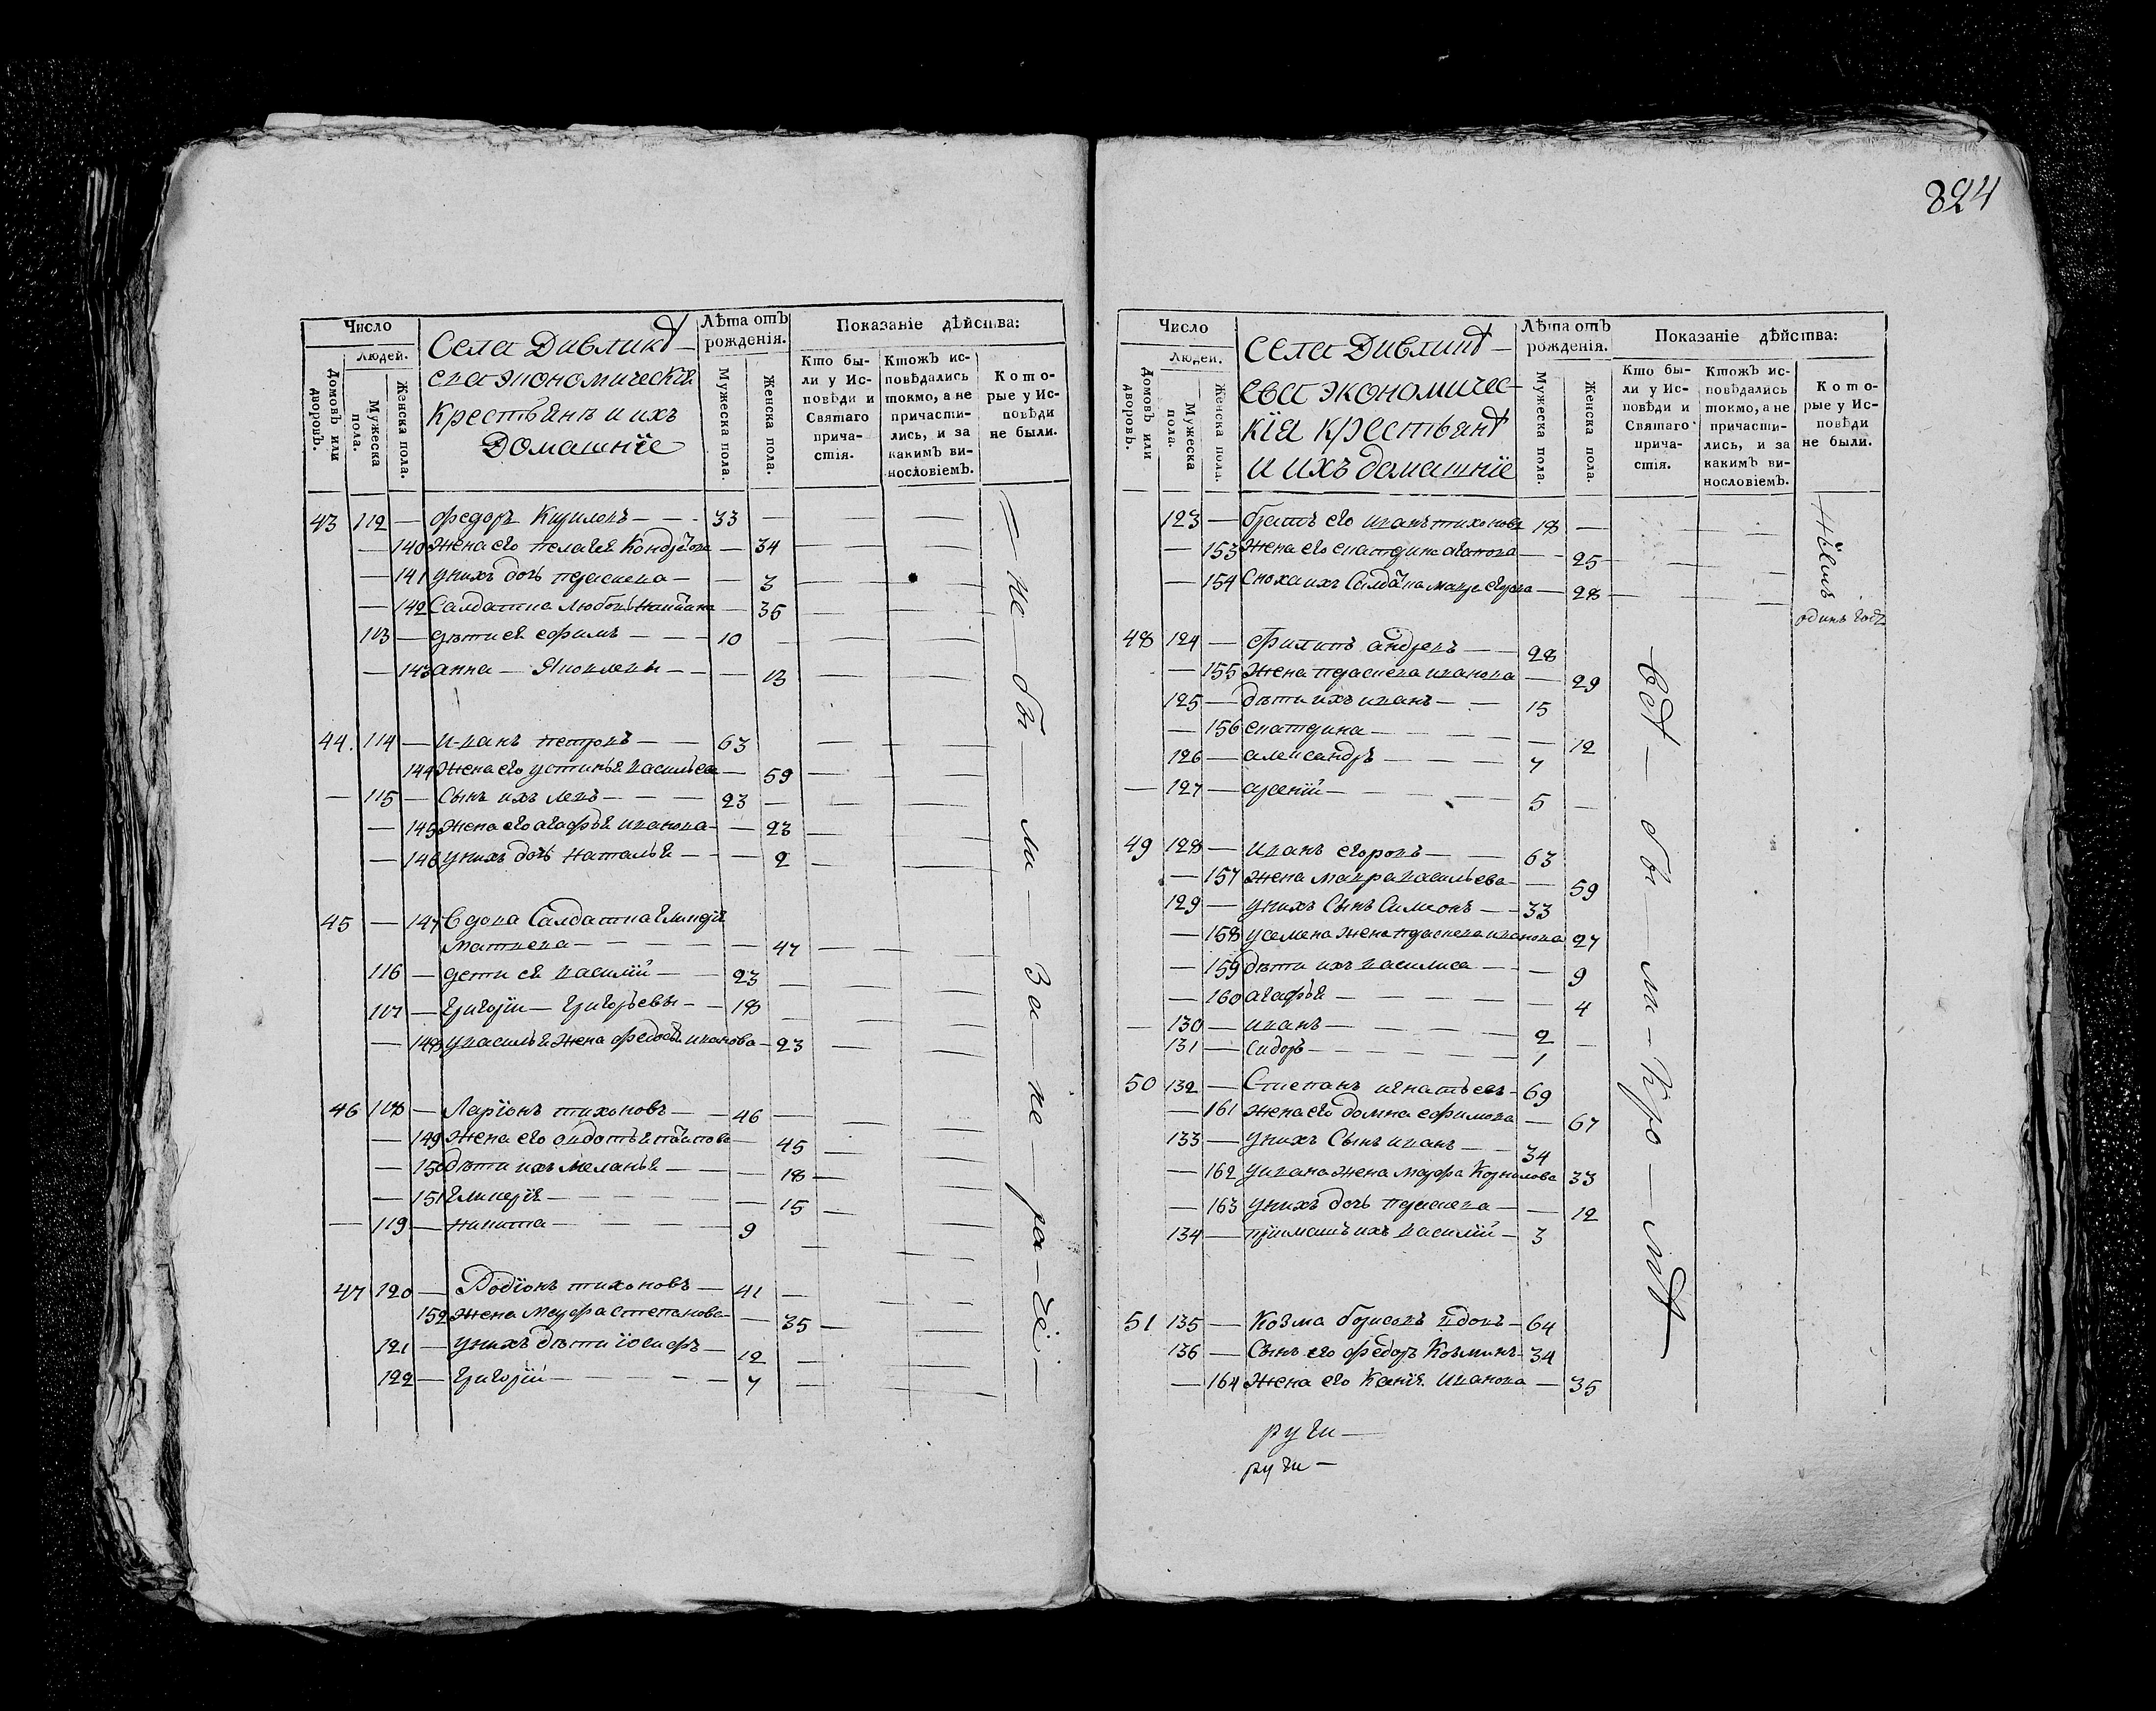 824
Число
Людей.
Домовъ или дворовъ.
Мужеска пола.
Женска пола.
Села Дивлик
ева экономическія
крестьянъ и ихъ
домашніе
Лѣта отъ рожденія.
Мужеска пола.
Женска пола.
Показаніе дѣйства:
Кто бы-
ли у Ис-
повѣди и
Святаго
прича-
стія.
Ктожъ ис-
повѣдались
токмо, а не
причасти-
лись, и за
какимъ ви-
нословіемъ.
Кото-
рые у Ис-
повѣди
не были.
43 112 — федоръ — 33 —
— 140 жена его пелагея — 34
— 141 у нихъ дочь праскева — 3
— 142 Салдатка любовь — 35
113 — дѣти ея ефимъ — 10
— 143 анна — Яковлевы — 13
44. 114 — иванъ петровъ — 63
144 жена его устинья васильева — 59
— 115 — сынъ ихъ левъ — 23 —
— 145 жена его агафья иванова — 23
— 146 у нихъ дочь наталья — 2
45 — 147 вдова Салдатка гликерія
матвева — 47
116 — дети ея василій — 23
117 — григоріи — григорьевы — 18
— 148 у василья жена федосья иванова — 23
46 118 — Ларіонъ тихоновъ — 46 —
— 149 жена его авдотья — 45
— 150 дѣти ихъ меланья — 18
— 151 гликерія — 15
— 119 — никита — 9
47 120 — Родіонъ тихоновъ — 41 —
152 жена марфа степанова — 35
121 — у нихъ дѣти іосифъ — 12 —
122 — григорій — 7 —
не — бы — ли — За — не — ра —
Число
Людей.
Домовъ или дворовъ.
Мужеска пола.
Женска пола.
Села Дивлик
ева экономичес-
кія крестьянъ
и ихъ домашніе
Лѣта отъ рожденія.
Мужеска пола.
Женска пола.
Показаніе дѣйства:
Кто бы-
ли у Ис-
повѣди и
Святаго
прича-
стія.
Ктожъ ис-
повѣдались
токмо, а не
причасти-
лись, и за
какимъ ви-
нословіемъ.
Кото-
рые у Ис-
повѣди
не были.
123 — братъ его иванъ тихоновъ 18 —
— 153 жена его екатерина — 25
— 154 Сноха ихъ — 28
одинъ годъ
48 124 — Филипъ андревъ — 28
— 155 жена праскева иванова — 29
125 — дѣти ихъ иванъ — 15
— 156 екатерина — 12
126 — александръ — 7
— 127 — арсеній — 5 —
49 128 — иванъ егоровъ — 63
— 157 жена мавра васильева — 59
129 — у нихъ сынъ Симеонъ — 33
— 158 у семена жена праскева иванова 27
— 159 дѣти ихъ василиса — 9
— 160 агафья — 4
— 130 — иванъ — 2
131 — сидоръ — 1
50 132 — Степанъ игнатьевъ — 69
— 161 жена его домна ефимова — 67
133 — у нихъ сынъ иванъ — 34
— 162 у ивана жена марфа 33
— 163 у нихъ дочь праскева — 12
134 — приматъ ихъ василій — 3
51 135 — Козма борисовъ вдовъ — 64
136 — Сынъ его федоръ Козминъ — 34
— 164 жена его Ксенія иванова — 35
всѣ — бы — ли
руги —
руги —